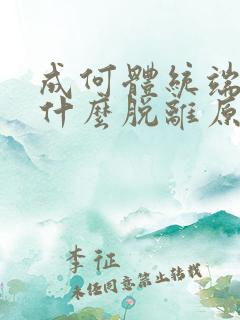 成何體統端
什麼脫離原
李征
未經同意禁止轉載